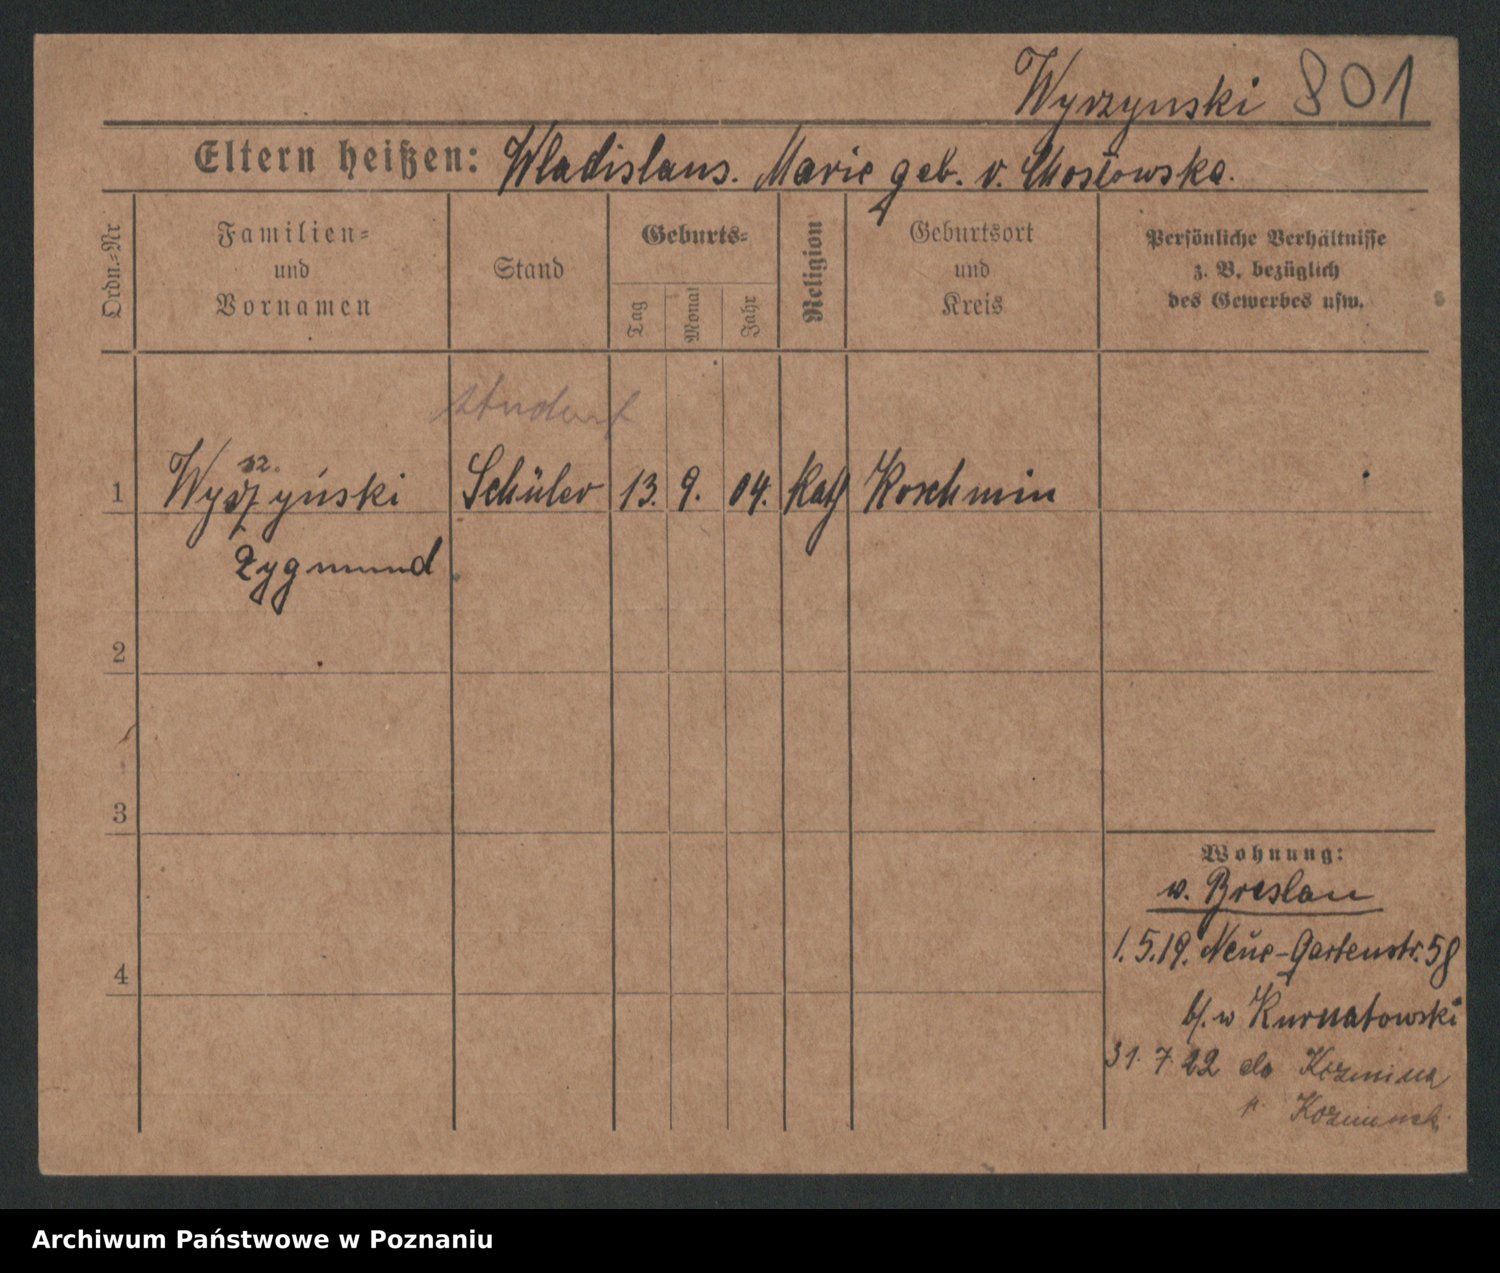 Wyrzynski 801
Eltern heißen: Wladislaus. Marie geb. v.
Ordn.-Nr
Familien-
und
Vornamen
Stand
Geburts-
Tag
Monat
Jahr
Religion
Geburtsort
und
Kreis
Persönliche Verhältnisse
z. B. bezüglich
des Gewerbes usw.
student
sz.
1 Schüler 13. 9. 04. Kath Koschmin
Zygmund
2
3
4
Wohnung:
v. Breslau
1. 5. 19. Neue-Gartenstr. 58
b/. v Kurnatowski
31. 7. 22 do Koźmina
p.
Archiwum Państwowe w Poznaniu